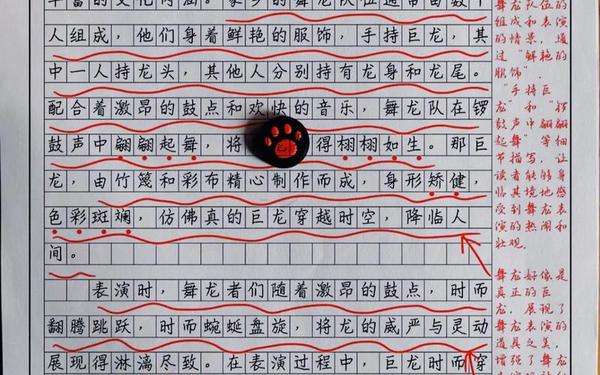 的文化内涵。家乡的舞龙队伍通常由数
人组成，他们身着鲜艳的服饰，手持巨龙，其
中一人持龙头，其他人分别持有龙身和龙尾。
配合着激昂的鼓点和欢快的音乐，舞龙队在锣
鼓声中翩翩起舞，将得栩栩如生。那巨
龙，由竹篾和彩布精心制作而成，身形矫健，
色彩斑斓，仿佛真的巨龙穿越时空，降临人
间。
表演时，舞龙者们随着激昂的鼓点，时而
翻腾跳跃，时而蜿蜒盘旋，将龙的威严与灵动
展现得淋漓尽致。在表演过程中，巨龙时而穿
舞龙队伍的
组成和表演
的情景，通
过“鲜艳的
服饰”.
“手持巨
龙”和“锣
鼓声中翩翩
起舞”等细
节描写，让
读者能够身
临其境地感
受到舞龙表
演的热闹和
壮观.
舞龙好像是
真正的巨
龙，展现了
舞龙表演的
道具之美，
增强了舞龙